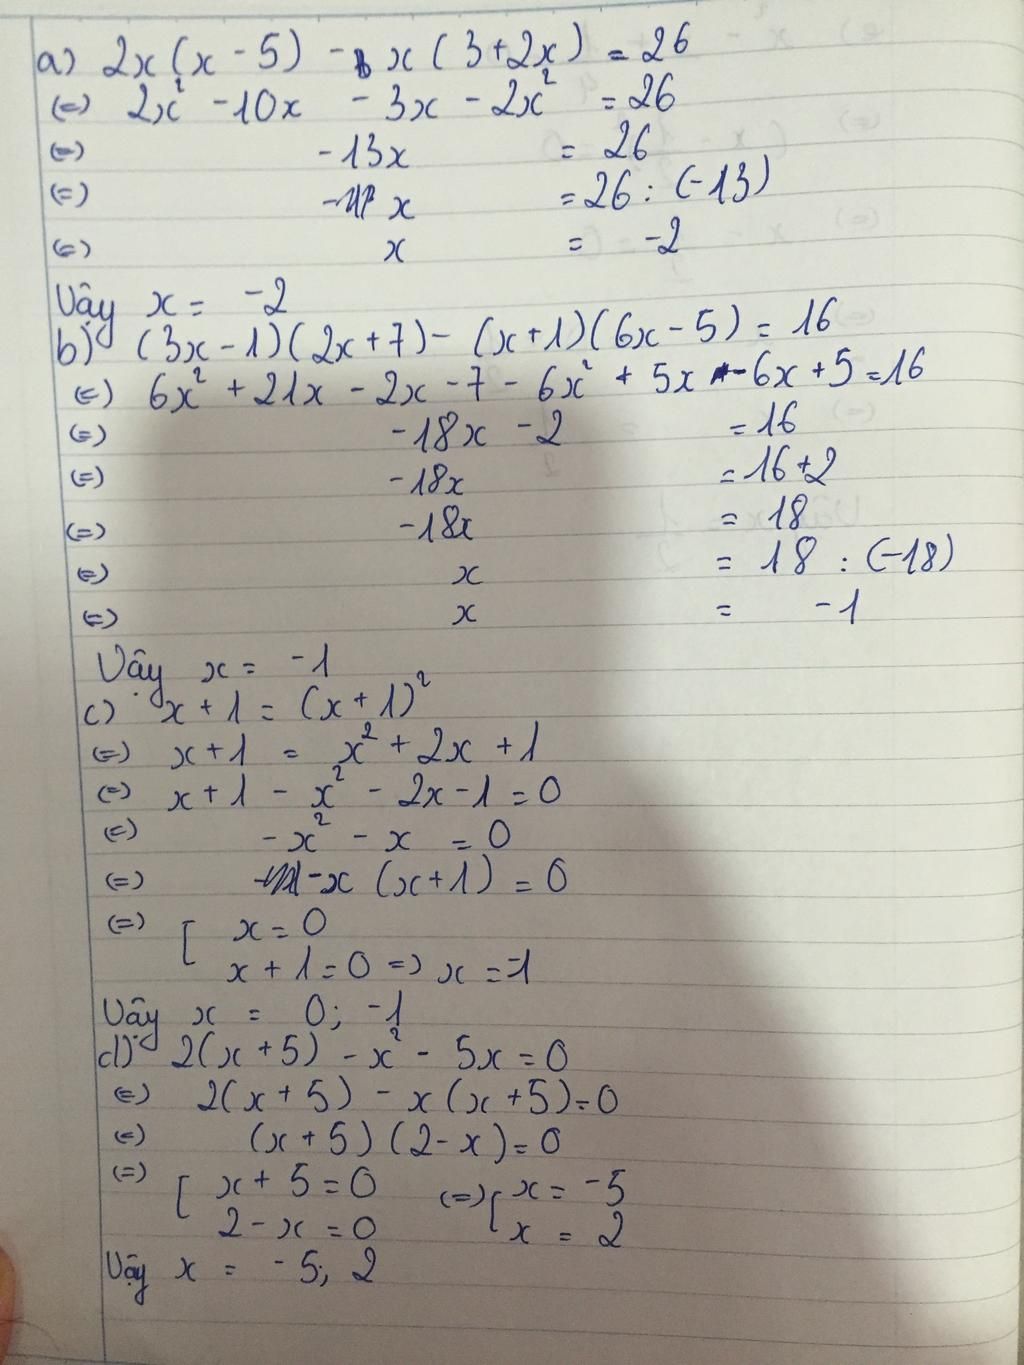 a) 2x(x - 5) - x(3 + 2x) = 26
(=) 2x² - 10x - 3x - 2x² = 26
(=) -13x = 26
(=) x = 26 : (-13)
(=) x = -2
Vậy x = -2
b) (3x - 1)(2x + 7) - (x + 1)(6x - 5) = 16
(=) 6x² + 21x - 2x - 7 - 6x² + 5x - 6x + 5 = 16
(=) -18x - 2 = 16
(=) -18x = 16 + 2
(=) -18x = 18
(=) x = 18 : (-18)
(=) x = -1
Vậy x = -1
c) x + 1 = (x + 1)²
(=) x + 1 = x² + 2x + 1
(=) x + 1 - x² - 2x - 1 = 0
(=) -x² - x = 0
(=) -x (x + 1) = 0
(=) [ x = 0
x + 1 = 0 => x = -1
Vậy x = 0; -1
d) 2(x + 5) - x² - 5x = 0
(=) 2(x + 5) - x(x + 5) = 0
(=) (x + 5)(2 - x) = 0
(=) [ x + 5 = 0 (=) [ x = -5
2 - x = 0 x = 2
Vậy x = -5; 2